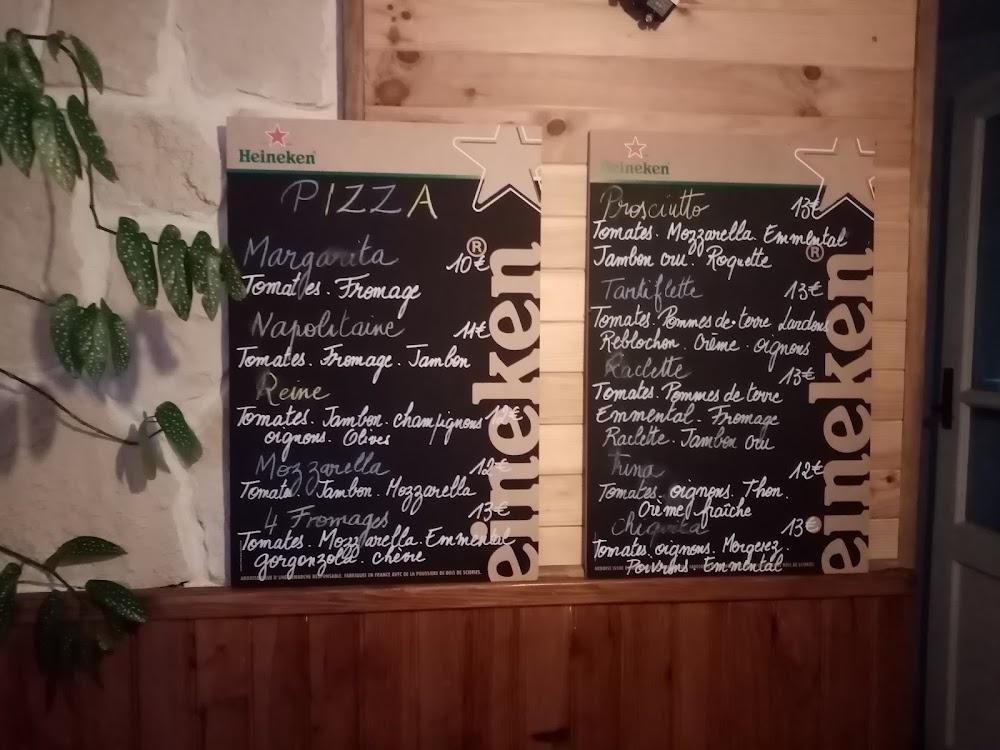 Heineken
PIZZA
Margarita 10€
Tomates. Fromage
Napolitaine 11€
Tomates. Fromage. Jambon
Reine
Tomates. Jambon. champignons 12€
oignons. Olives
Mozzarella 12€
Tomates. Jambon. Mozzarella
4 Fromages 13€
Tomates. Mozzarella. Emmental
gorgonzola. chèvre
eineken®
ARDOISE ISSUE D'UNE DÉMARCHE RESPONSABLE. FABRIQUÉE EN FRANCE AVEC DE LA POUSSIÈRE DE BOIS DE SCIERIES.
Heineken
Prosciutto 13€
Tomates. Mozzarella. Emmental
Jambon cru. Roquette
Tartiflette 13€
Tomates. Pommes de terre Lardons
Reblochon. Crème. oignons
Raclette 13€
Tomates. Pommes de terre
Emmental. Fromage
Raclette. Jambon cru
Trina 12€
Tomates. oignons. Thon.
Crème fraîche
Chiquita 13€
Tomates. oignons. Merguez.
Poivrons Emmental
eineken®